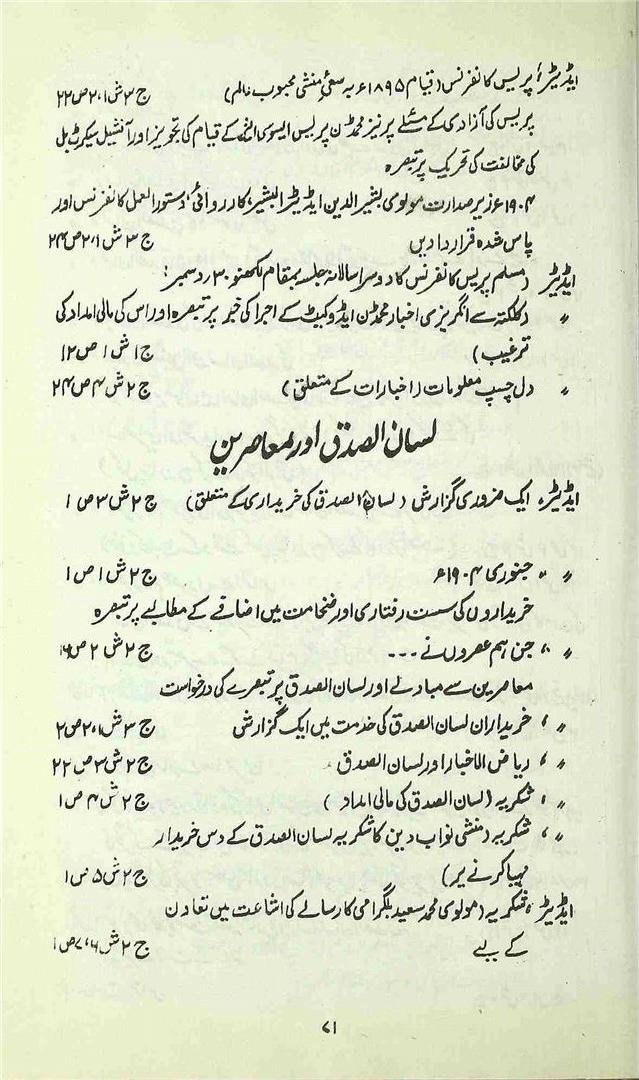 ایڈیٹر، پریس کانفرنس (قیام ۱۸۹۵ء بہ سعیٔ منشی محبوب عالم) ج ۳ ش ۱،۲ ص ۲۲
پریس کی آزادی کے مسئلے پر نیز محمڈن پریس ایسوی ایشن کے قیام کی تجویز اور آفیشل سیکرٹ بل
کی مخالفت کی تحریک پر تبصرہ
۱۹۰۴ء زیر صدارت مولوی بشیر الدین ایڈیٹر البشیر، کارروائی، دستور العمل کانفرنس اور
پاس شدہ قراردادیں ج ۳ ش ۱،۲ ص ۲۴
ایڈیٹر (مسلم پریس کانفرنس کا دوسرا سالانہ جلسہ بمقام لکھنؤ ۳۰ دسمبر:
〃 (کلکتہ سے انگریزی اخبار محمڈن ایڈوکیٹ کے اجرا کی خبر پر تبصرہ اور اس کی مالی امداد کی
ترغیب) ج ۱ ش ۱ ص ۱۲
〃 دل چسپ معلومات (اخبارات کے متعلق) ج ۲ ش ۴ ص ۲۴
لسان الصدق اور معاصرین
ایڈیٹر، ایک ضروری گزارش (لسان الصدق کی خریداری کے متعلق) ج ۲ ش ۳ ص ۱
〃 〃 جنوری ۱۹۰۴ء ج ۲ ش ۱ ص ۱
خریداروں کی سست رفتاری اور ضخامت میں اضافے کے مطالبے پر تبصرہ
〃 ، جن ہم عصروں نے ۔۔۔ ج ۲ ش ۲ ص ۱۶
معاصرین سے مبادلے اور لسان الصدق پر تبصرے کی درخواست
〃 ، خریداران لسان الصدق کی خدمت میں ایک گزارش ج ۳ ش ۱،۲ ص ۲
〃 ، ریاض الاخبار اور لسان الصدق ج ۲ ش ۳ ص ۲۲
〃 ، شکریہ (لسان الصدق کی مالی امداد) ج ۲ ش ۴ ص ۱
〃 ، شکریہ (منشی نواب دین کا شکریہ لسان الصدق کے دس خریدار
مہیا کرنے پر) ج ۲ ش ۵ ص ۱
ایڈیٹر، شکریہ (مولوی محمد سعید بلگرامی کا رسالے کی اشاعت میں تعاون
کے لیے ج ۲ ش ۶،۷ ص ۱
۷۱